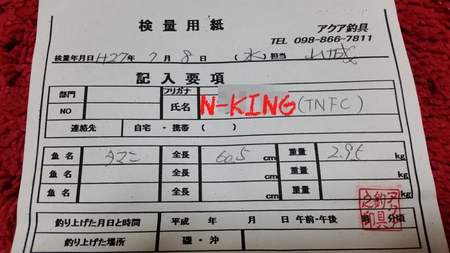 検量用紙
アクア釣具
TEL 098-866-7811
検量年月日 H27年 7月 8日 (水) 担当 山城
記入要項
部門 フリガナ
NO 氏名 N-KING (TNFC)
連絡先 自宅・携帯 ( )
魚名 タマン 全長 60.5 cm 重量 2.95 kg
魚名 全長 cm 重量 kg
魚名 全長 cm 重量
釣り上げた月日と時間 平成 年 月 日 午前・午後 時 分頃
釣り上げた場所 磯・沖